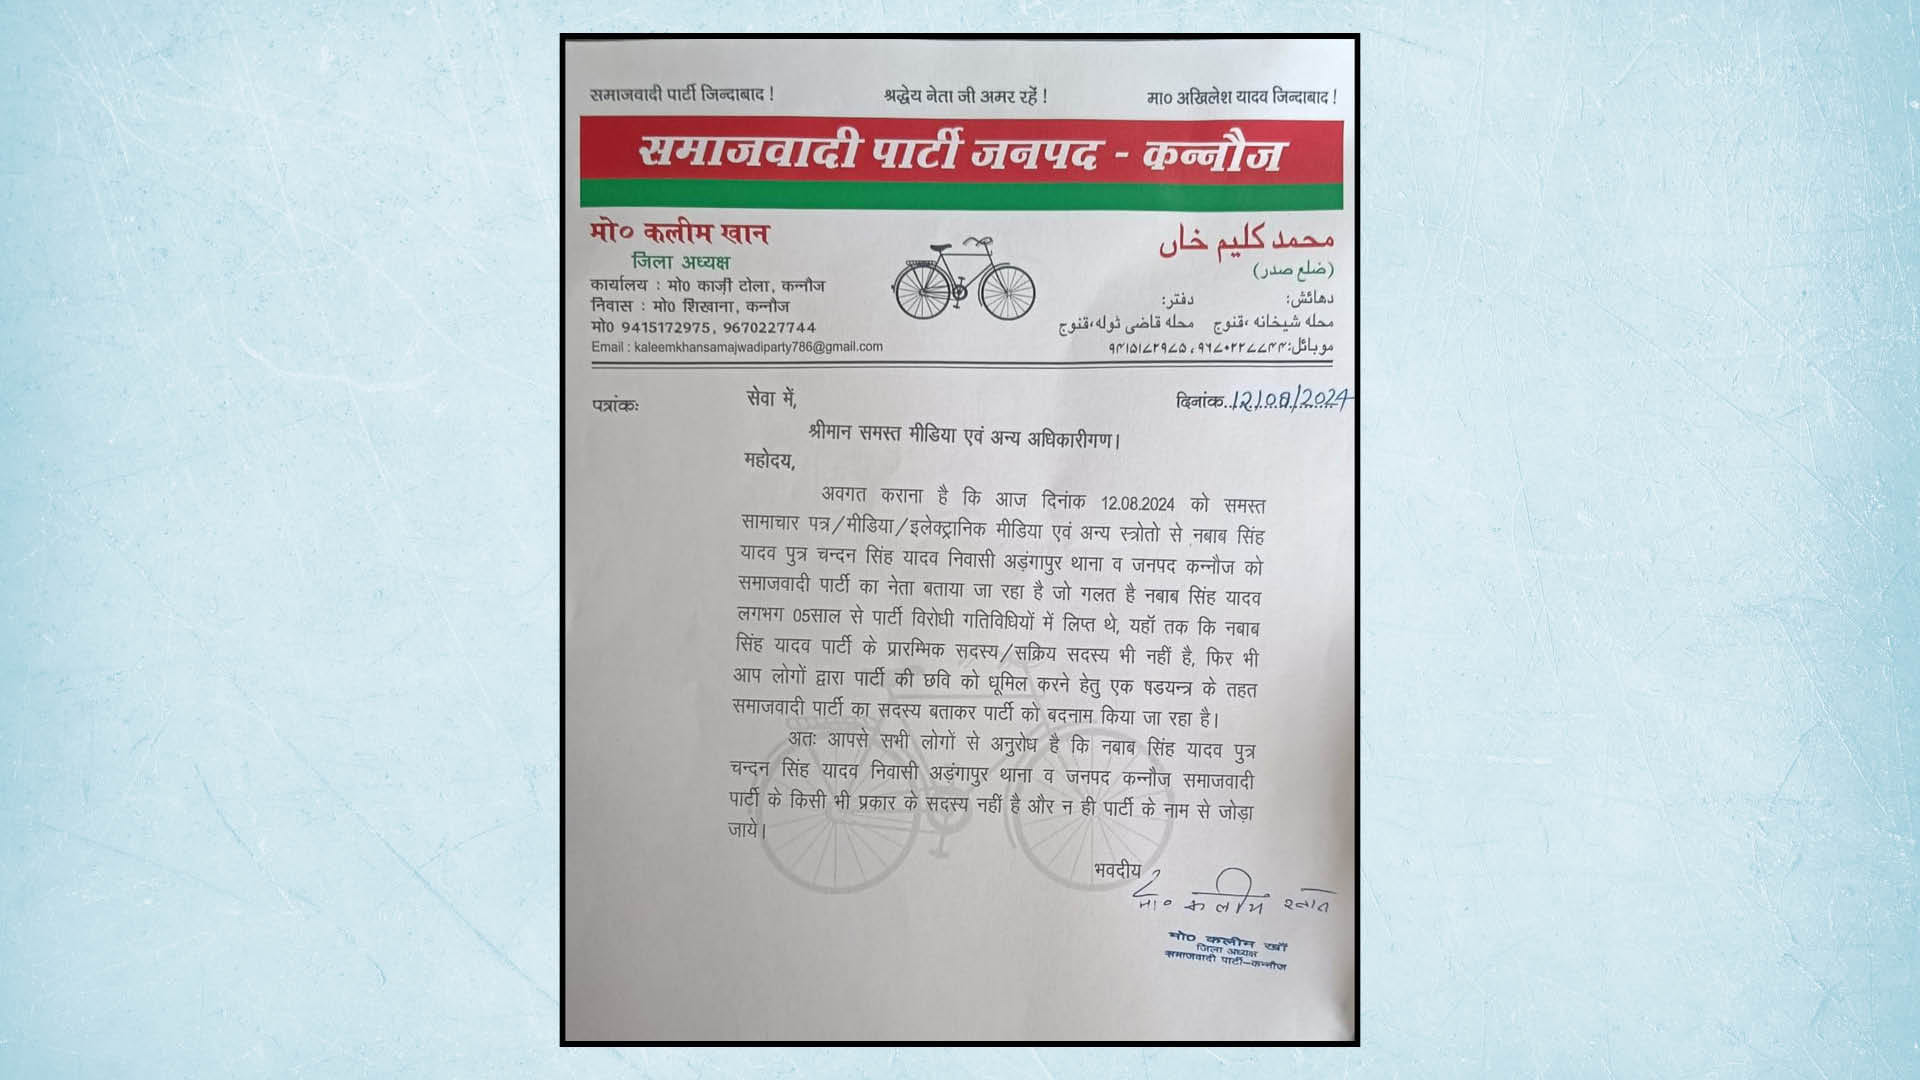 समाजवादी पार्टी जिन्दाबाद !
श्रद्धेय नेता जी अमर रहें !
मा० अखिलेश यादव जिन्दाबाद !
समाजवादी पार्टी जनपद - कन्नौज
मो० कलीम खान
जिला अध्यक्ष
कार्यालय : मो0 काज़ी टोला, कन्नौज
निवास : मो0 शिखाना, कन्नौज
मो0 9415172975, 9670227744
Email : kaleemkhansamajwadiparty786@gmail.com
محمد کلیم خاں
(ضلع صدر)
دھائش: دفتر:
محلہ شیخانہ ،قنوج محلہ قاضی ٹولہ،قنوج
موبائل:۹۶۷۰۲۲۷۷۴۴ ،۹۴۱۵۱۷۲۹۷۵
पत्रांकः
सेवा में,
दिनांक 12/08/2024
श्रीमान समस्त मीडिया एवं अन्य अधिकारीगण।
महोदय,
अवगत कराना है कि आज दिनांक 12.08.2024 को समस्त
सामाचार पत्र/मीडिया/इलेक्ट्रानिक मीडिया एवं अन्य स्त्रोतो से नबाब सिंह
यादव पुत्र चन्दन सिंह यादव निवासी अड़ंगापुर थाना व जनपद कन्नौज को
समाजवादी पार्टी का नेता बताया जा रहा है जो गलत है नबाब सिंह यादव
लगभग 05साल से पार्टी विरोधी गतिविधियों में लिप्त थे, यहॉ तक कि नबाब
सिंह यादव पार्टी के प्रारम्भिक सदस्य/सक्रिय सदस्य भी नहीं है, फिर भी
आप लोगों द्वारा पार्टी की छवि को धूमिल करने हेतु एक षडयन्त्र के तहत
समाजवादी पार्टी का सदस्य बताकर पार्टी को बदनाम किया जा रहा है।
अतः आपसे सभी लोगों से अनुरोध है कि नबाब सिंह यादव पुत्र
चन्दन सिंह यादव निवासी अड़ंगापुर थाना व जनपद कन्नौज समाजवादी
पार्टी के किसी भी प्रकार के सदस्य नहीं है और न ही पार्टी के नाम से जोड़ा
जाये।
भवदीय
मो० कलीम खान
मो0 कलीम खाँ
जिला अध्यक्ष
समाजवादी पार्टी-कन्नौज